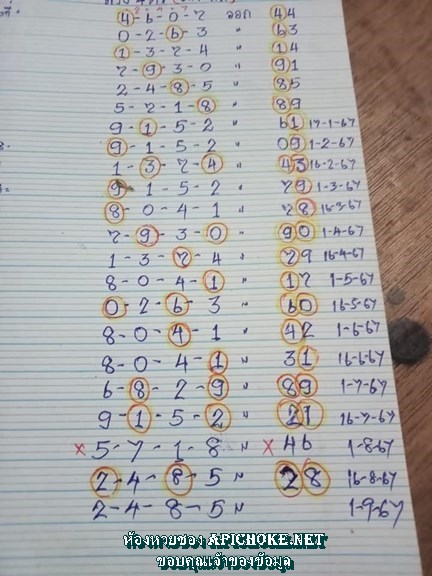 4-6-0-7 ออก 44
0-2-6-3 " 63
1-3-7-4 " 14
7-9-3-0 " 91
2-4-8-5 " 85
5-7-1-8 " 89
9-1-5-2 " 61 17-1-67
9-1-5-2 " 09 1-2-67
1-3-7-4 " 43 16-2-67
9-1-5-2 " 79 1-3-67
8-0-4-1 " 78 16-3-67
7-9-3-0 " 90 1-4-67
1-3-7-4 " 79 16-4-67
8-0-4-1 " 17 1-5-67
0-2-6-3 " 60 16-5-67
8-0-4-1 " 42 1-6-67
8-0-4-1 " 31 16-6-67
6-8-2-9 " 89 1-7-67
9-1-5-2 " 21 16-7-67
x 5-7-1-8 " x 46 1-8-67
2-4-8-5 " 28 16-8-67
2-4-8-5 " 1-9-67
ห้องหวยซอง APICHOKE.NET
ขอบคุณเจ้าของข้อมูล